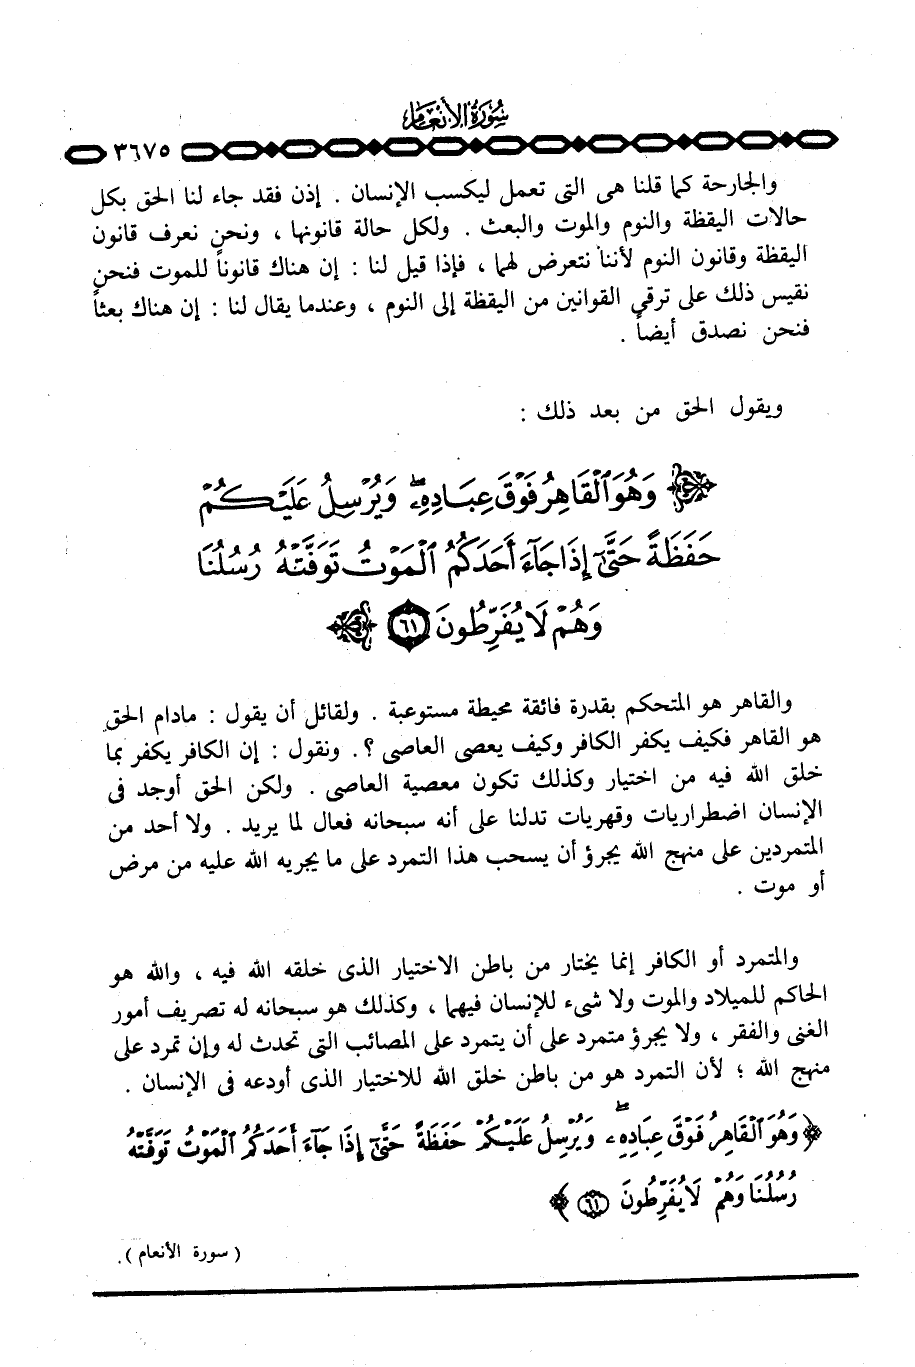 سُورَةُ الأَنْعَام
٣٦٧٥
والجارحة كما قلنا هى التى تعمل ليكسب الإنسان . إذن فقد جاء لنا الحق بكل
حالات اليقظة والنوم والموت والبعث . ولكل حالة قانونها ، ونحن نعرف قانون
اليقظة وقانون النوم لأننا نتعرض لهما ، فإذا قيل لنا : إن هناك قانوناً للموت فنحن
نقيس ذلك على ترقى القوانين من اليقظة إلى النوم ، وعندما يقال لنا : إن هناك بعثاً
فنحن نصدق أيضاً .
ويقول الحق من بعد ذلك :
وَهُوَ ٱلْقَاهِرُ فَوْقَ عِبَادِهِۦ ۖ وَيُرْسِلُ عَلَيْكُمْ
حَفَظَةً حَتَّىٰٓ إِذَا جَآءَ أَحَدَكُمُ ٱلْمَوْتُ تَوَفَّتْهُ رُسُلُنَا
وَهُمْ لَا يُفَرِّطُونَ ٦١
والقاهر هو المتحكم بقدرة فائقة محيطة مستوعبة . ولقائل أن يقول : مادام الحق
هو القاهر فكيف يكفر الكافر وكيف يعصى العاصى ؟. ونقول : إن الكافر يكفر بما
خلق الله فيه من اختيار وكذلك تكون معصية العاصى . ولكن الحق أوجد فى
الإنسان اضطراريات وقهريات تدلنا على أنه سبحانه فعال لما يريد . ولا أحد من
المتمردين على منهج الله يجرؤ أن يسحب هذا التمرد على ما يجريه الله عليه من مرض
أو موت .
والمتمرد أو الكافر إنما يختار من باطن الاختيار الذى خلقه الله فيه ، والله هو
الحاكم للميلاد والموت ولا شىء للإنسان فيهما ، وكذلك هو سبحانه له تصريف أمور
الغنى والفقر ، ولا يجرؤ متمرد على أن يتمرد على المصائب التى تحدث له وإن تمرد على
منهج الله ؛ لأن التمرد هو من باطن خلق الله للاختيار الذى أودعه فى الإنسان .
﴿ وَهُوَ ٱلْقَاهِرُ فَوْقَ عِبَادِهِۦ ۖ وَيُرْسِلُ عَلَيْكُمْ حَفَظَةً حَتَّىٰٓ إِذَا جَآءَ أَحَدَكُمُ ٱلْمَوْتُ تَوَفَّتْهُ
رُسُلُنَا وَهُمْ لَا يُفَرِّطُونَ ٦١ ﴾
( سورة الأنعام ).